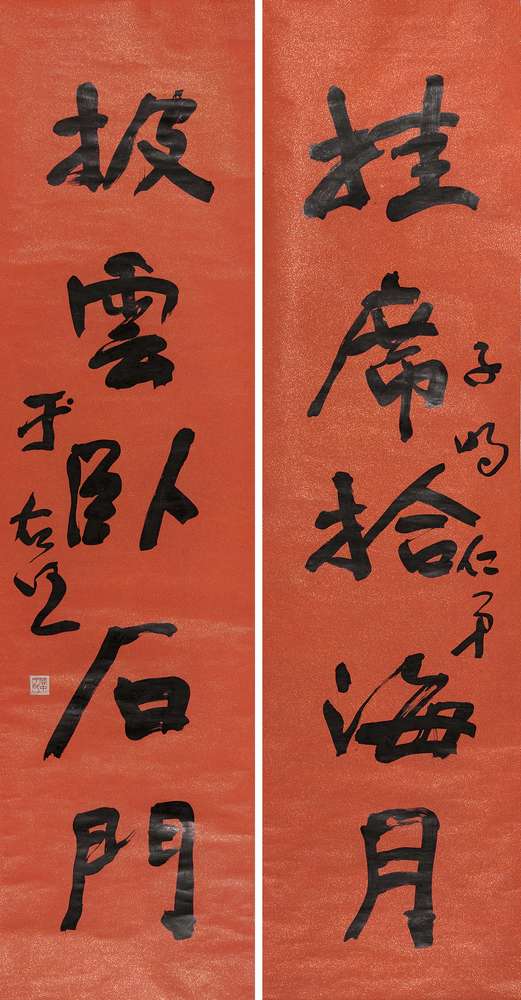 挂席拾海月
子鳴仁弟
披雲臥石門
于右任